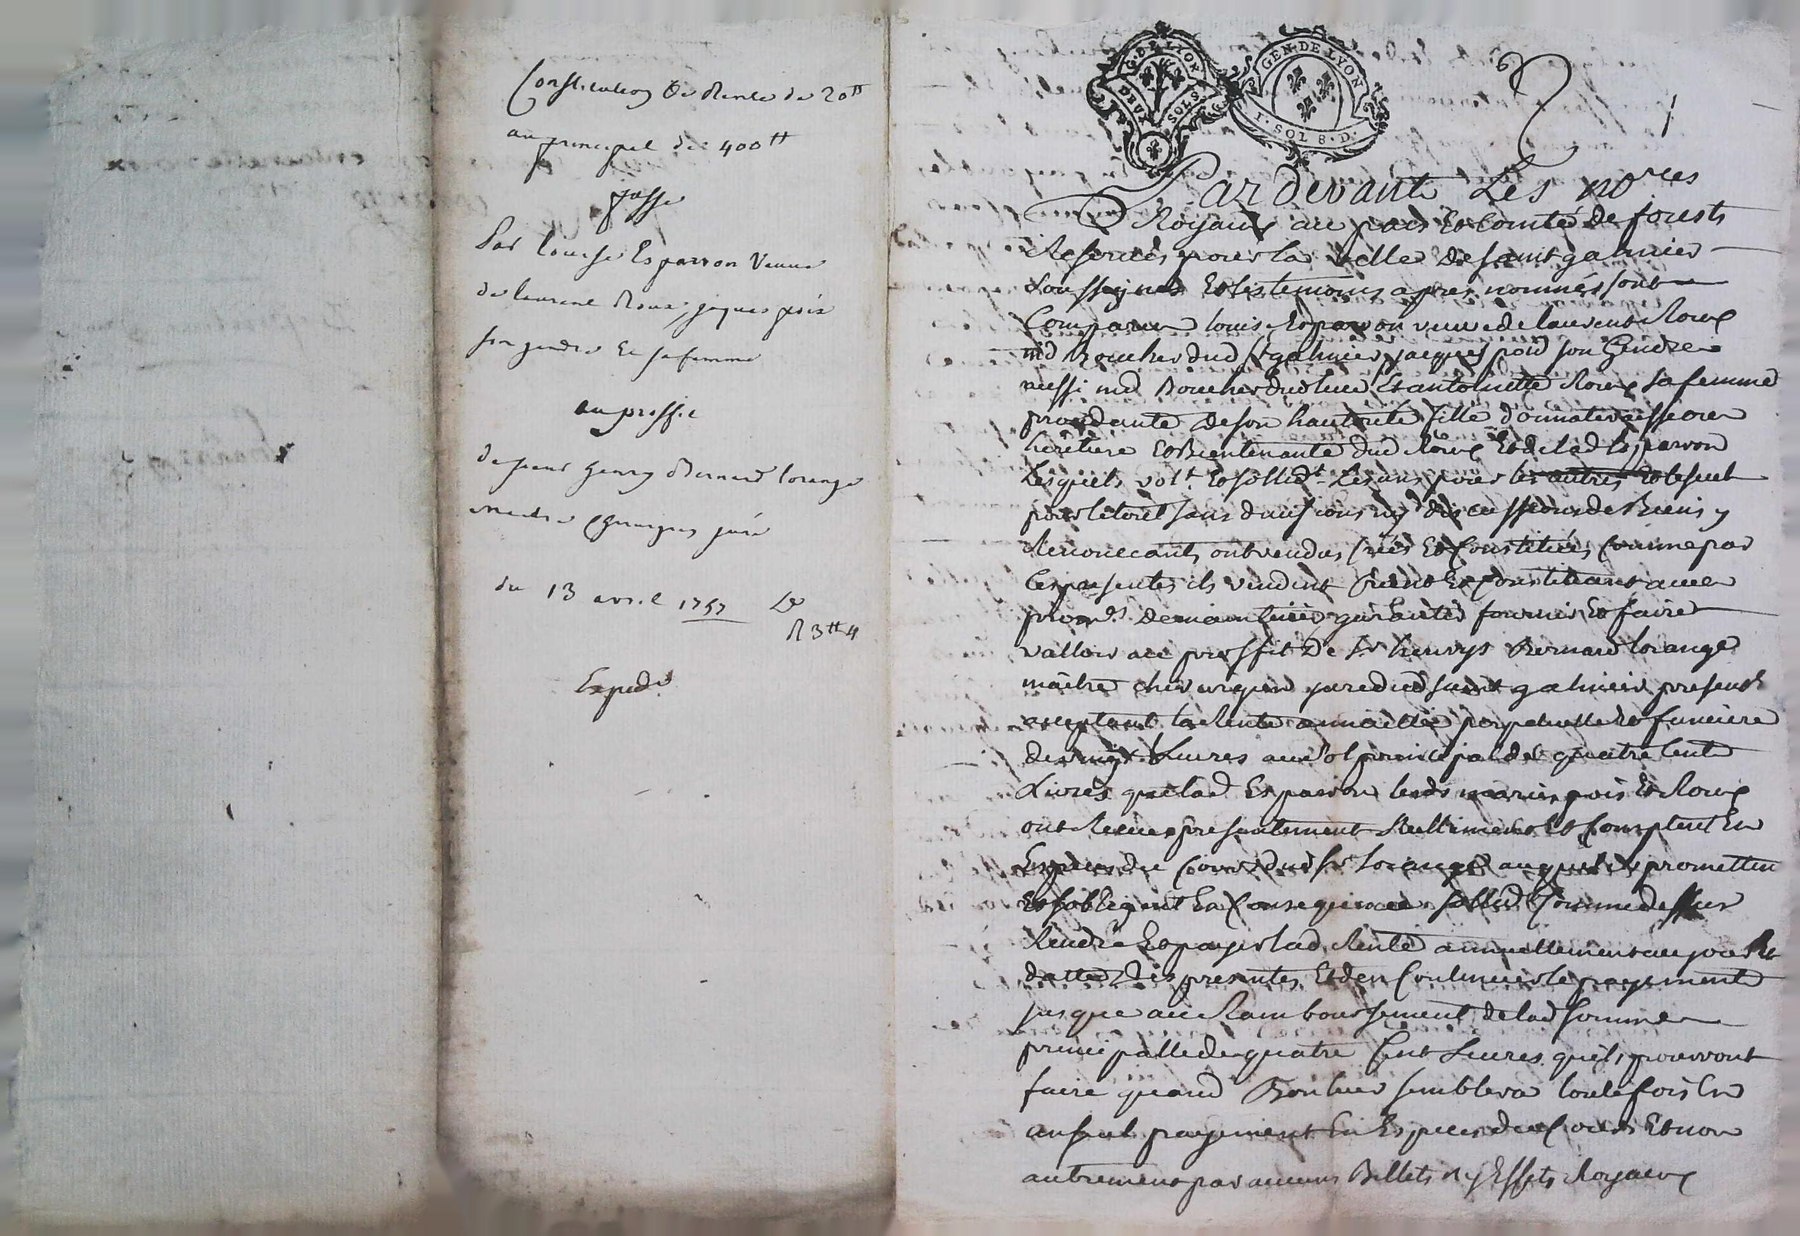 Constitution de Rente de 20tt
au principal de 400tt
passé
Par Louise Esparron Veuve
de laurent Roux, jaques poix
son gendre et sa femme
au proffit
de sieur henry Bernard lorange
maitre chirurgien juré
du 13 avril 1757
R 3tt 4
Expedié
GEN. DE LYON
DEUX SOLS
GEN. DE LYON
1. SOL 8. D.
1
Pardevant Les nores
Royaux au pais et Comté de forests
Reservés pour la ville de saint galmier
soussignés et les temoins apres nommés sont
Comparus louise Esparron veuve de laurent Roux
md Boucher dud st galmier jacques poix son Gendre
aussi md Boucher dud lieu et antoinette Roux sa femme
procedante de son hautorité fille donnataire
heritiere et Bientenante dud Roux et de lad Esparron
Lesquels volt. et sollidt. les uns pour les autres et le seul
pour le tout sans division ny discussion de Biens y
Renonceants ont vendus Créés et Constitués Comme par
Ces presentes ils vendent Créent et Constituent avec
prome. de maintenir garantir fournir et faire
valloir au proffit de sr henry Bernard lorange
maitre chirurgien juré dud saint galmier present
acceptant la Rente annuelle perpetuelle et fonciere
de vingt Livres au sol principal de quatre Cent
Livres que lad Esparron lesds mariés poix et Roux
ont Receu presentement Reellement et Comptent En
Especes du Cours dud sr lorange auquel ils promettent
et sobligent En Consequence sollid Comme dessus
Rendre et payer lad Rente annuellement au jour et
datte des presentes et den Continuer le payement
jusque au Ramboursement de lad somme
principalle de quatre Cent Livres quils pourront
faire quand Bon leur semblera toutefois En
un seul payement En Especes de Cours et non
autrement par aucuns Billets ny Effets Royaux